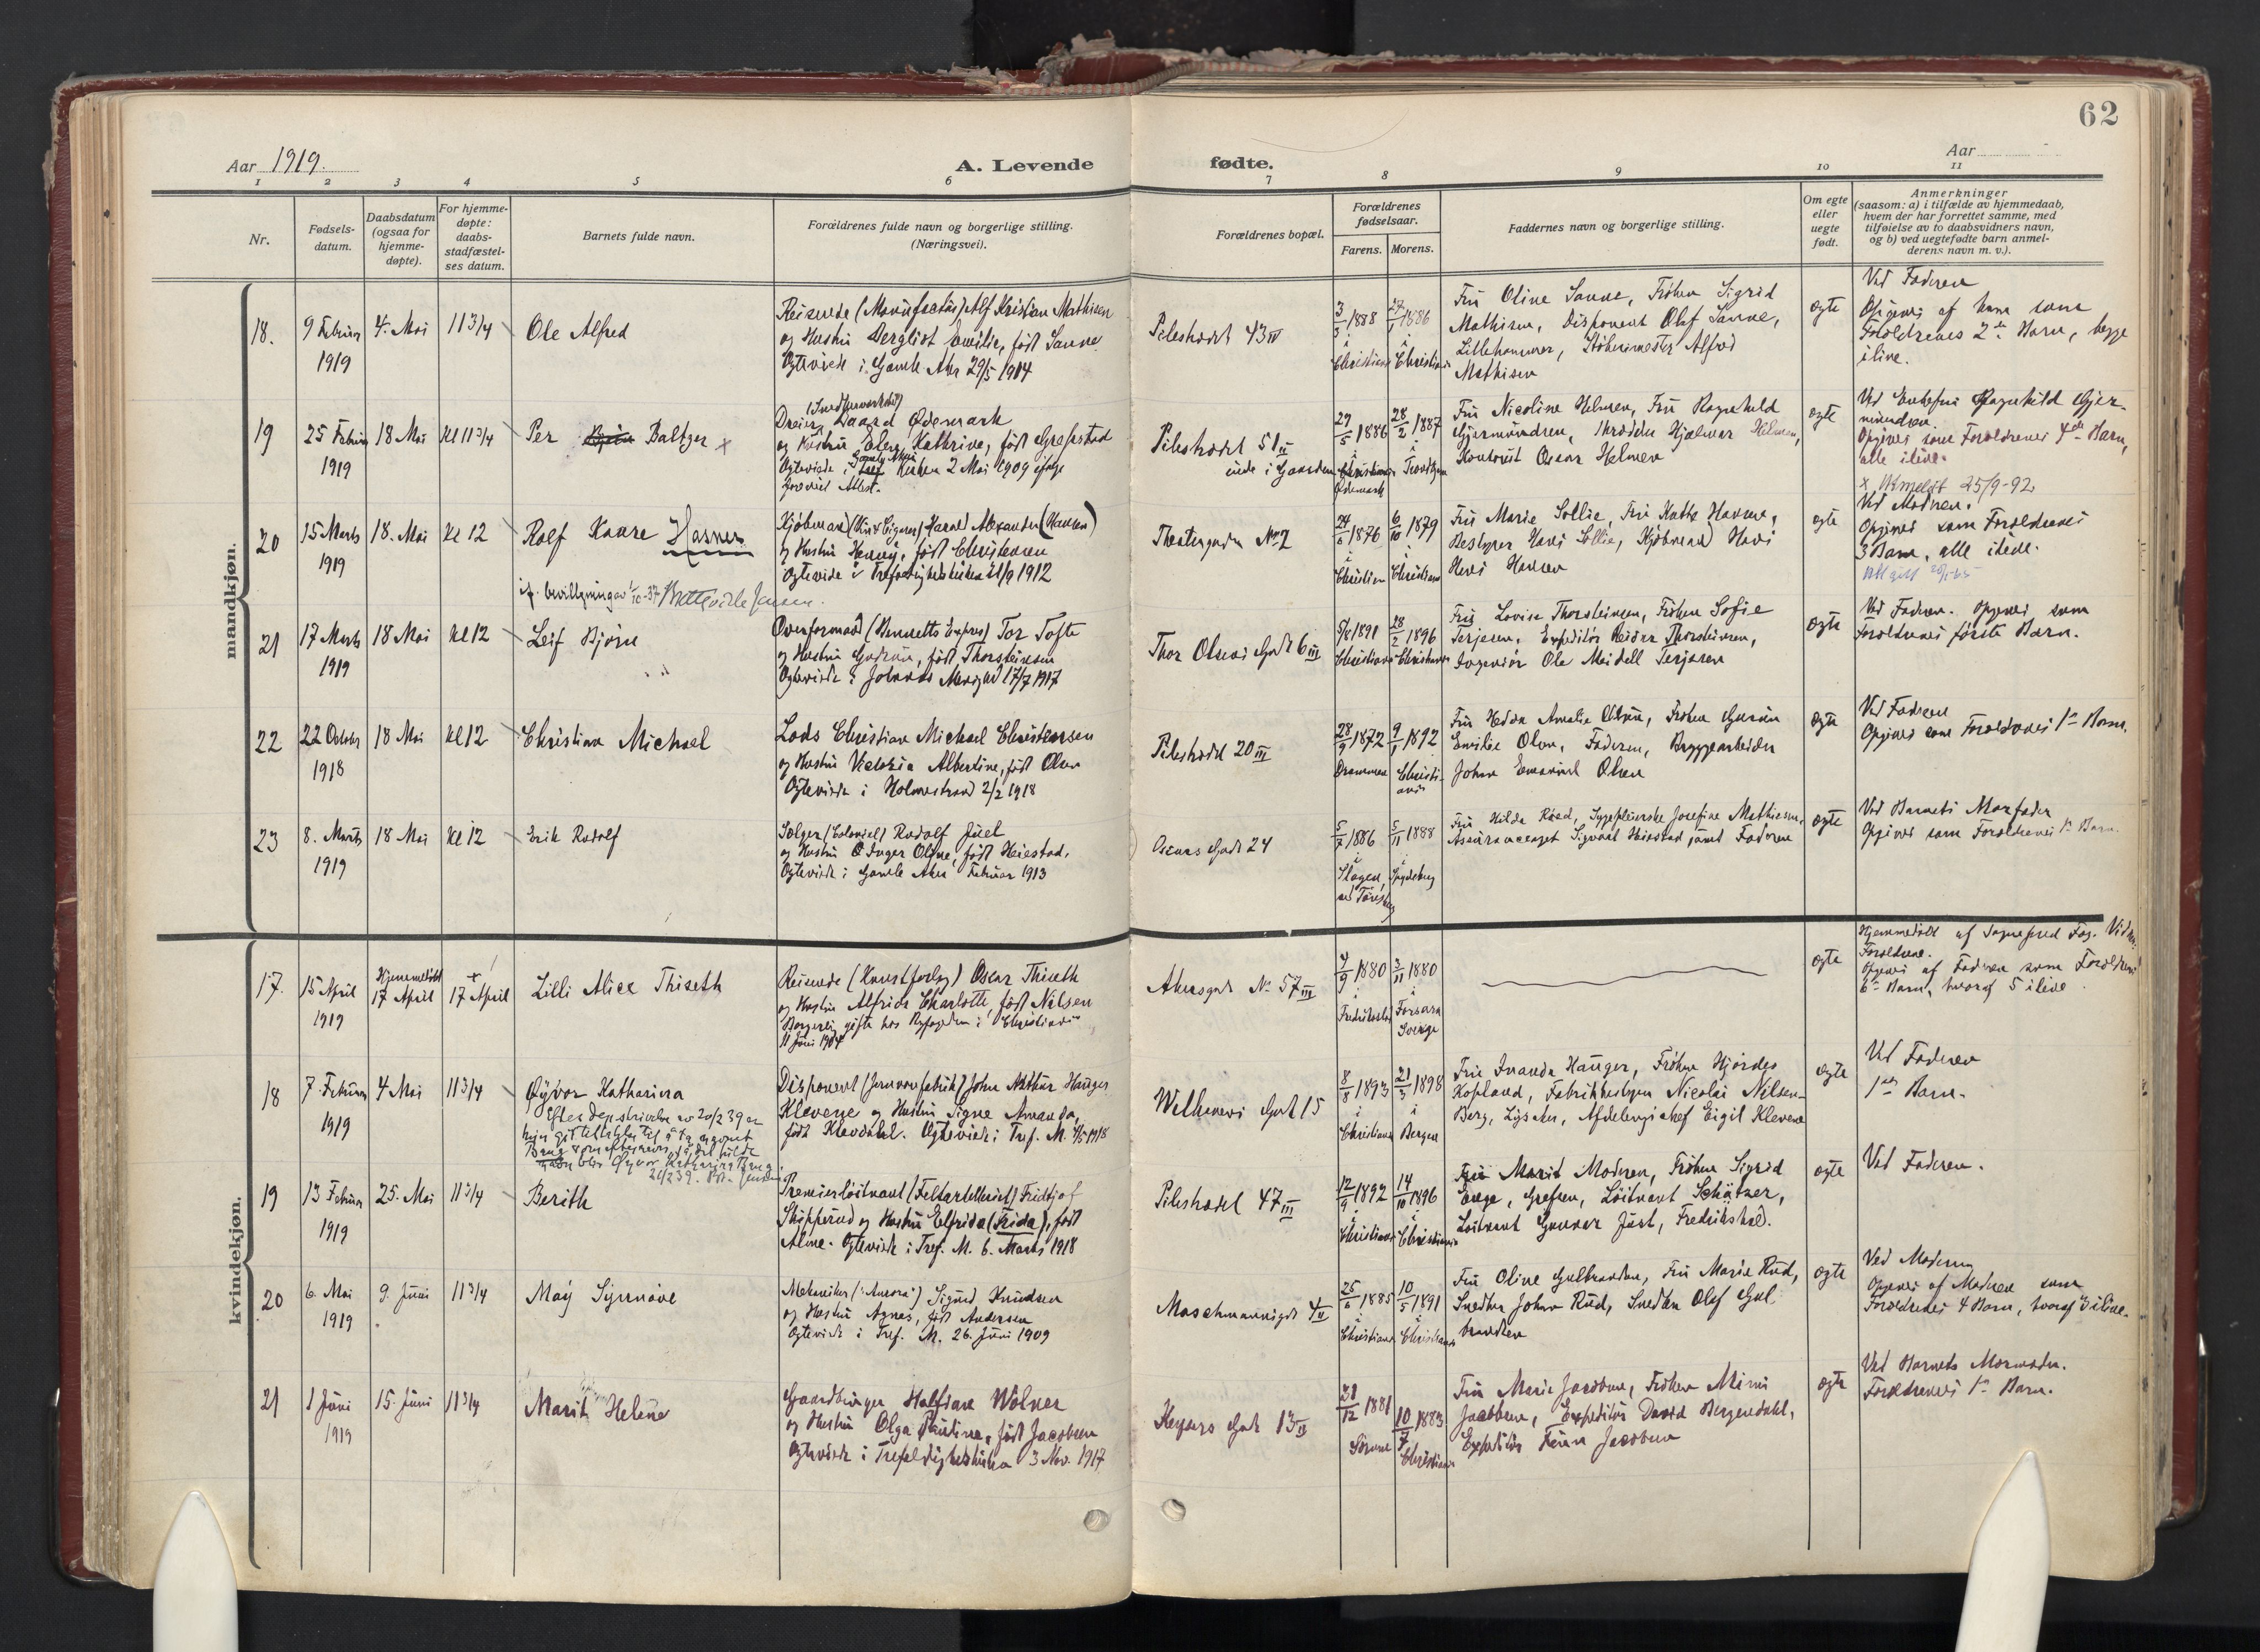 62
Aar 1919.
A. Levende
fødte.
Aar
1 2 3 4 5 6 7 8 9 10 11
Nr.
Fødsels-
datum.
Daabsdatum
(ogsaa for
hjemme-
døpte).
For hjemme-
døpte:
daabs-
stadfæstel-
ses datum.
Barnets fulde navn.
Forældrenes fulde navn og borgerlige stilling.
(Næringsvei).
Forældrenes bopæl.
Forældrenes
fødselsaar.
Farens. Morens.
Faddernes navn og borgerlige stilling.
Om egte
eller
uegte
født.
Anmerkninger
(saasom: a) i tilfælde av hjemmedaab,
hvem der har forrettet samme, med
tilføielse av to daabsvidners navn,
og b) ved uegtefødte barn anmel-
derens navn m. v.).
mandkjøn.
18.
9 Februar
1919
4. Mai
11 3/4
Ole Alfred
Reisende (Manufactur) Alf Kristian Mathisen
og Hustru Bergliot Emilie, født Sanne
Ægteviede i Gamle Aker 29/5 1914
Pilestrædet 43 IV
3/3 1888
Christiania
1886
Christiania
Fru Oline Sanne, Frøken Sigrid
Mathisen, Disponent Olaf Sanne,
Lillehammer, Alfred
Mathisen
egte
Ved Faderen
Opgives af ham som
Forældrenes 2det Barn, begge
ilive.
19
25 Februar
1919
18 Mai
Kl 11 3/4
Per Baltzer x
Dreier Ødemark
og Hustru Ellen Kathrine, født Grefsrud
Ægteviede i Gamle Aker Kirke 2 Mai 1909 ifølge
forevist Attest.
Pilestrædet 51 II
inde i Gaarden
29/5 1886
Ødemark
28/2 1887
Trondhjem
Fru Nicoline Helmen, Fru Ragnhild
Gjermundsen, Hjalmar Helmen,
Kontorist Oscar Helmen
egte
Ved Enkefru Ragnhild Gjer-
mundsen.
Opgives som Forældrenes 4de Barn,
alle ilive.
x Utmeldt 25/9-92
20
15 Marts
1919
18. Mai
Kl 12
Rolf Kaare Hasner
if. bevillgning av 1/10-37
Kjøbmand Harald Alexander (Hansen)
og Hustru Henny, født Christensen
Ægteviede i Trefoldighedskirken 1912
Theatergaden No 2
24/6 1876
Christiania
6/10 1879
Christiania
Fru Marie Sollie, Fru Kathe Hansen,
Bestyrer Hans Sollie, Kjøbmand Hans
Hansen
egte
Ved Moderen.
Opgives som Forældrenes
3 Barn, alle ilive.
21
17 Marts
1919
18 Mai
Kl 12
Leif Bjørn
(Bennetts Expres) Tor Tofte
og Hustru Gudrun, født Thorsteinsen
Ægteviede i Johannes Menighed 17/7 1917
Thor Olsens Gade 6 III
5/8 1891
Christiania
28/2 1896
Christiania
Fru Lovise Thorsteinsen, Frøken Sofie
Terjesen, Expeditør Reidar Thorsteinsen,
Ingeniør Ole Meidell Terjesen
egte
Ved Faderen. Opgives som
Forældrenes første Barn.
22
22 October
1918
18 Mai
Kl 12
Christian Michael
Lods Christian Michael Christensen
og Hustru Victoria Albertine, født Olsen
Ægteviede i Holmestrand 2/2 1918
Pilestrædet 20 III
28/9 1872
Drammen
9/1 1892
Christi-
ania
Fru Hedda Amalie Olsen, Frøken Gunvor
Emilie Olsen, Faderen, Bryggearbeider
Johan Emanuel Olsen
egte
Ved Faderen
Opgives som Forældrenes 1ste Barn.
23
8. Marts
1919
18 Mai
Kl 12
Erik Rudolf
Sælger (Colonial) Rudolf Juel
og Hustru Inger Oline, født Heiestad.
Ægteviede i Gamle Aker Februar 1913
Oscars Gade 24
5/7 1886
Slagen,
ved Tønsberg
5/11 1888
Spydeberg
Fru Hilda Røed, Sygepleierske Josefine Mathiesen,
Assuranceagent Sigvart Heiestad samt Faderen
egte
Ved Barnets Morfader
Opgives som Forældrenes 1ste Barn.
kvindekjøn.
17.
15 April
1919
Hjemmedøbt
17 April
+
17 April
Lilli Alice Thiseth
Reisende (Kunstforlag) Oscar Thiseth
og Hustru Alfride Charlotte, født Nilsen
Borgerlig gifte hos Byfogden i Christiania
11 Juni 1904
Akersgade No 57 III
4/9 1880
Fredrikstad
3/11 1880
Sverige
egte
Hjemmedøbt af Sogneprest
Forældrene.
Opgives af Faderen som Forældrenes
6te Barn, hvoraf 5 ilive.
18
7. Februar
1919
4 Mai
11 3/4
Øyvor Katharina
Disponent (Jernvarefabrik) John Arthur Hauger
Klevene og Hustru Signe Amanda,
født Klevdahl. Ægteviede i Tref. M. 1918
Wilhelms Gade 15
8/8 1893
Christiania
21/3 1898
Bergen
Fru Amanda Hauger, Frøken Hjørdis
Kopland, Fabrikbestyrer Nicolai Nilsen-
Berg, Lysaker, Afdelingschef Eigil Klevene
egte
Ved Faderen
1ste Barn.
19
13 Februar
1919
25. Mai
11 3/4
Berith
Premierløitnant (Feltartelleriet) Fridtjof
Skipperud og Hustru Elfrida (Frida), født
Aline. Ægteviede i Tref. M. 6. Marts 1918
Pilestrædet 47 III
12/9 1892
Christiania
14/10 1896
Christiania
Fru Marit Moderen, Frøken Sigrid
Enge, Grefsen, Løitnant Schätzer,
Løitnant Gunnar Just, Fredrikshald.
egte
Ved Faderen.
20
6. Mai
1919
9. Juni
11 3/4
May Synnøve
Mekaniker ("Aurora") Sigurd Knudsen
og Hustru Agnes, født Andersen
Ægteviede i Tref. M. 26. Juni 1909
Maschmannsgd 4 II
25/6 1885
Christiania
10/5 1891
Christiania
Fru Oline Gulbrandsen, Fru Marie Rud,
Snedker Johan Rud, Snedker Olaf Gul
brandsen
egte
Ved Moderen
Opgives af Moderen som
Forældrenes 4 Barn, hvoraf 3 ilive.
21
1 Juni
1919
15. Juni
11 3/4
Marit Helene
Gaardbruger Halfdan Wølner
og Hustru Olga Pauline, født Jacobsen
Ægteviede i Trefoldighedskirken 3 Nov. 1917
Keysers Gade 13 II
31/12 1881
10/7 1883
Christiania
Fru Marie Jacobsen, Frøken Mimi
Jacobsen, Expeditør David Bergendahl,
Expeditør Jacobsen
egte
Ved Barnets Mormoder.
Forældrenes 1ste Barn.